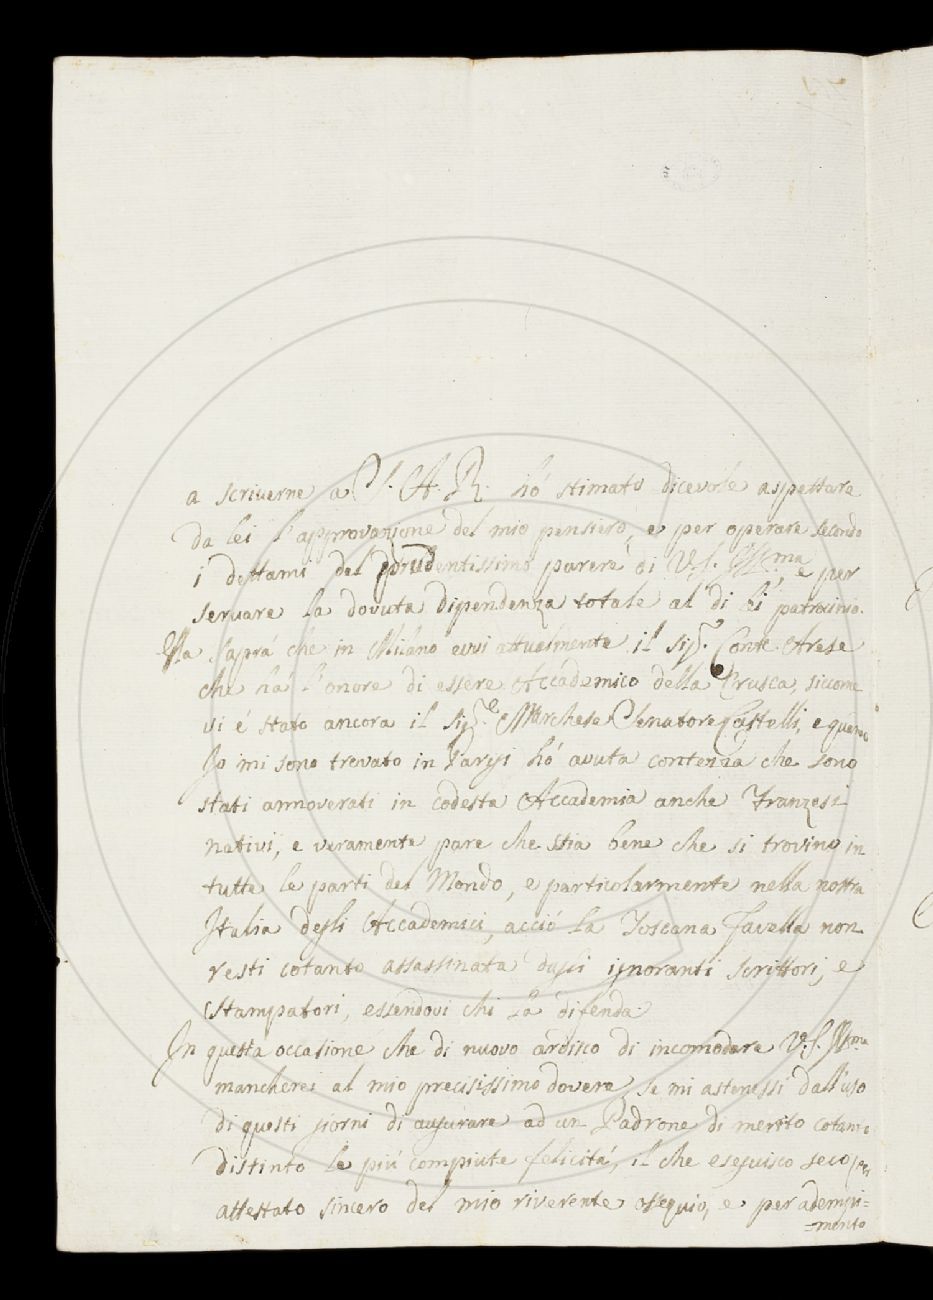 a scriverne a S. A. R. hó stimato dicevole aspettare
da lei l'approvazione del mio pensiero, e per operare secondo
i dettami del prudentissimo parere di V.S. Ill.ma, e per
servare la dovuta dipendenza totale al di lei patrocinio.
Ella saprá che in Milano evvi attualmente il Sig.r Conte Arese
che há l'onore di essere Accademico della Crusca, siccome
vi é stato ancora il Sig.r Marchese Senatore Castelli, e quando
Io mi sono trovato in Parigi hó avuta contezza che sono
stati annoverati in codesta Accademia anche Franzesi
nativi, e veramente pare che stia bene che si trovino in
tutte le parti del Mondo, e particolarmente nella nostra
Italia degli Accademici, acció la Toscana favella non
resti cotanto assassinata dagli ignoranti scrittori, e
Stampatori, essendovi chi la difenda.
In questa occasione che di nuovo ardisco di incomodare V.S. Ill.ma
mancherei al mio precisissimo dovere, se mi astenessi dall'uso
di questi giorni di augurare ad un Padrone di merito cotanto
distinto le piú compiute felicitá, il che eseguisco seco per
attestato sincero del mio riverente ossequio, e per adempi=
=mento